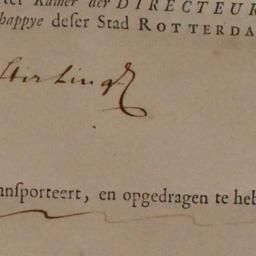 ter Kamer der DIRECTEUR
happye deser Stad ROTTERDA
Stirling
ansporteert, en opgedragen te heb